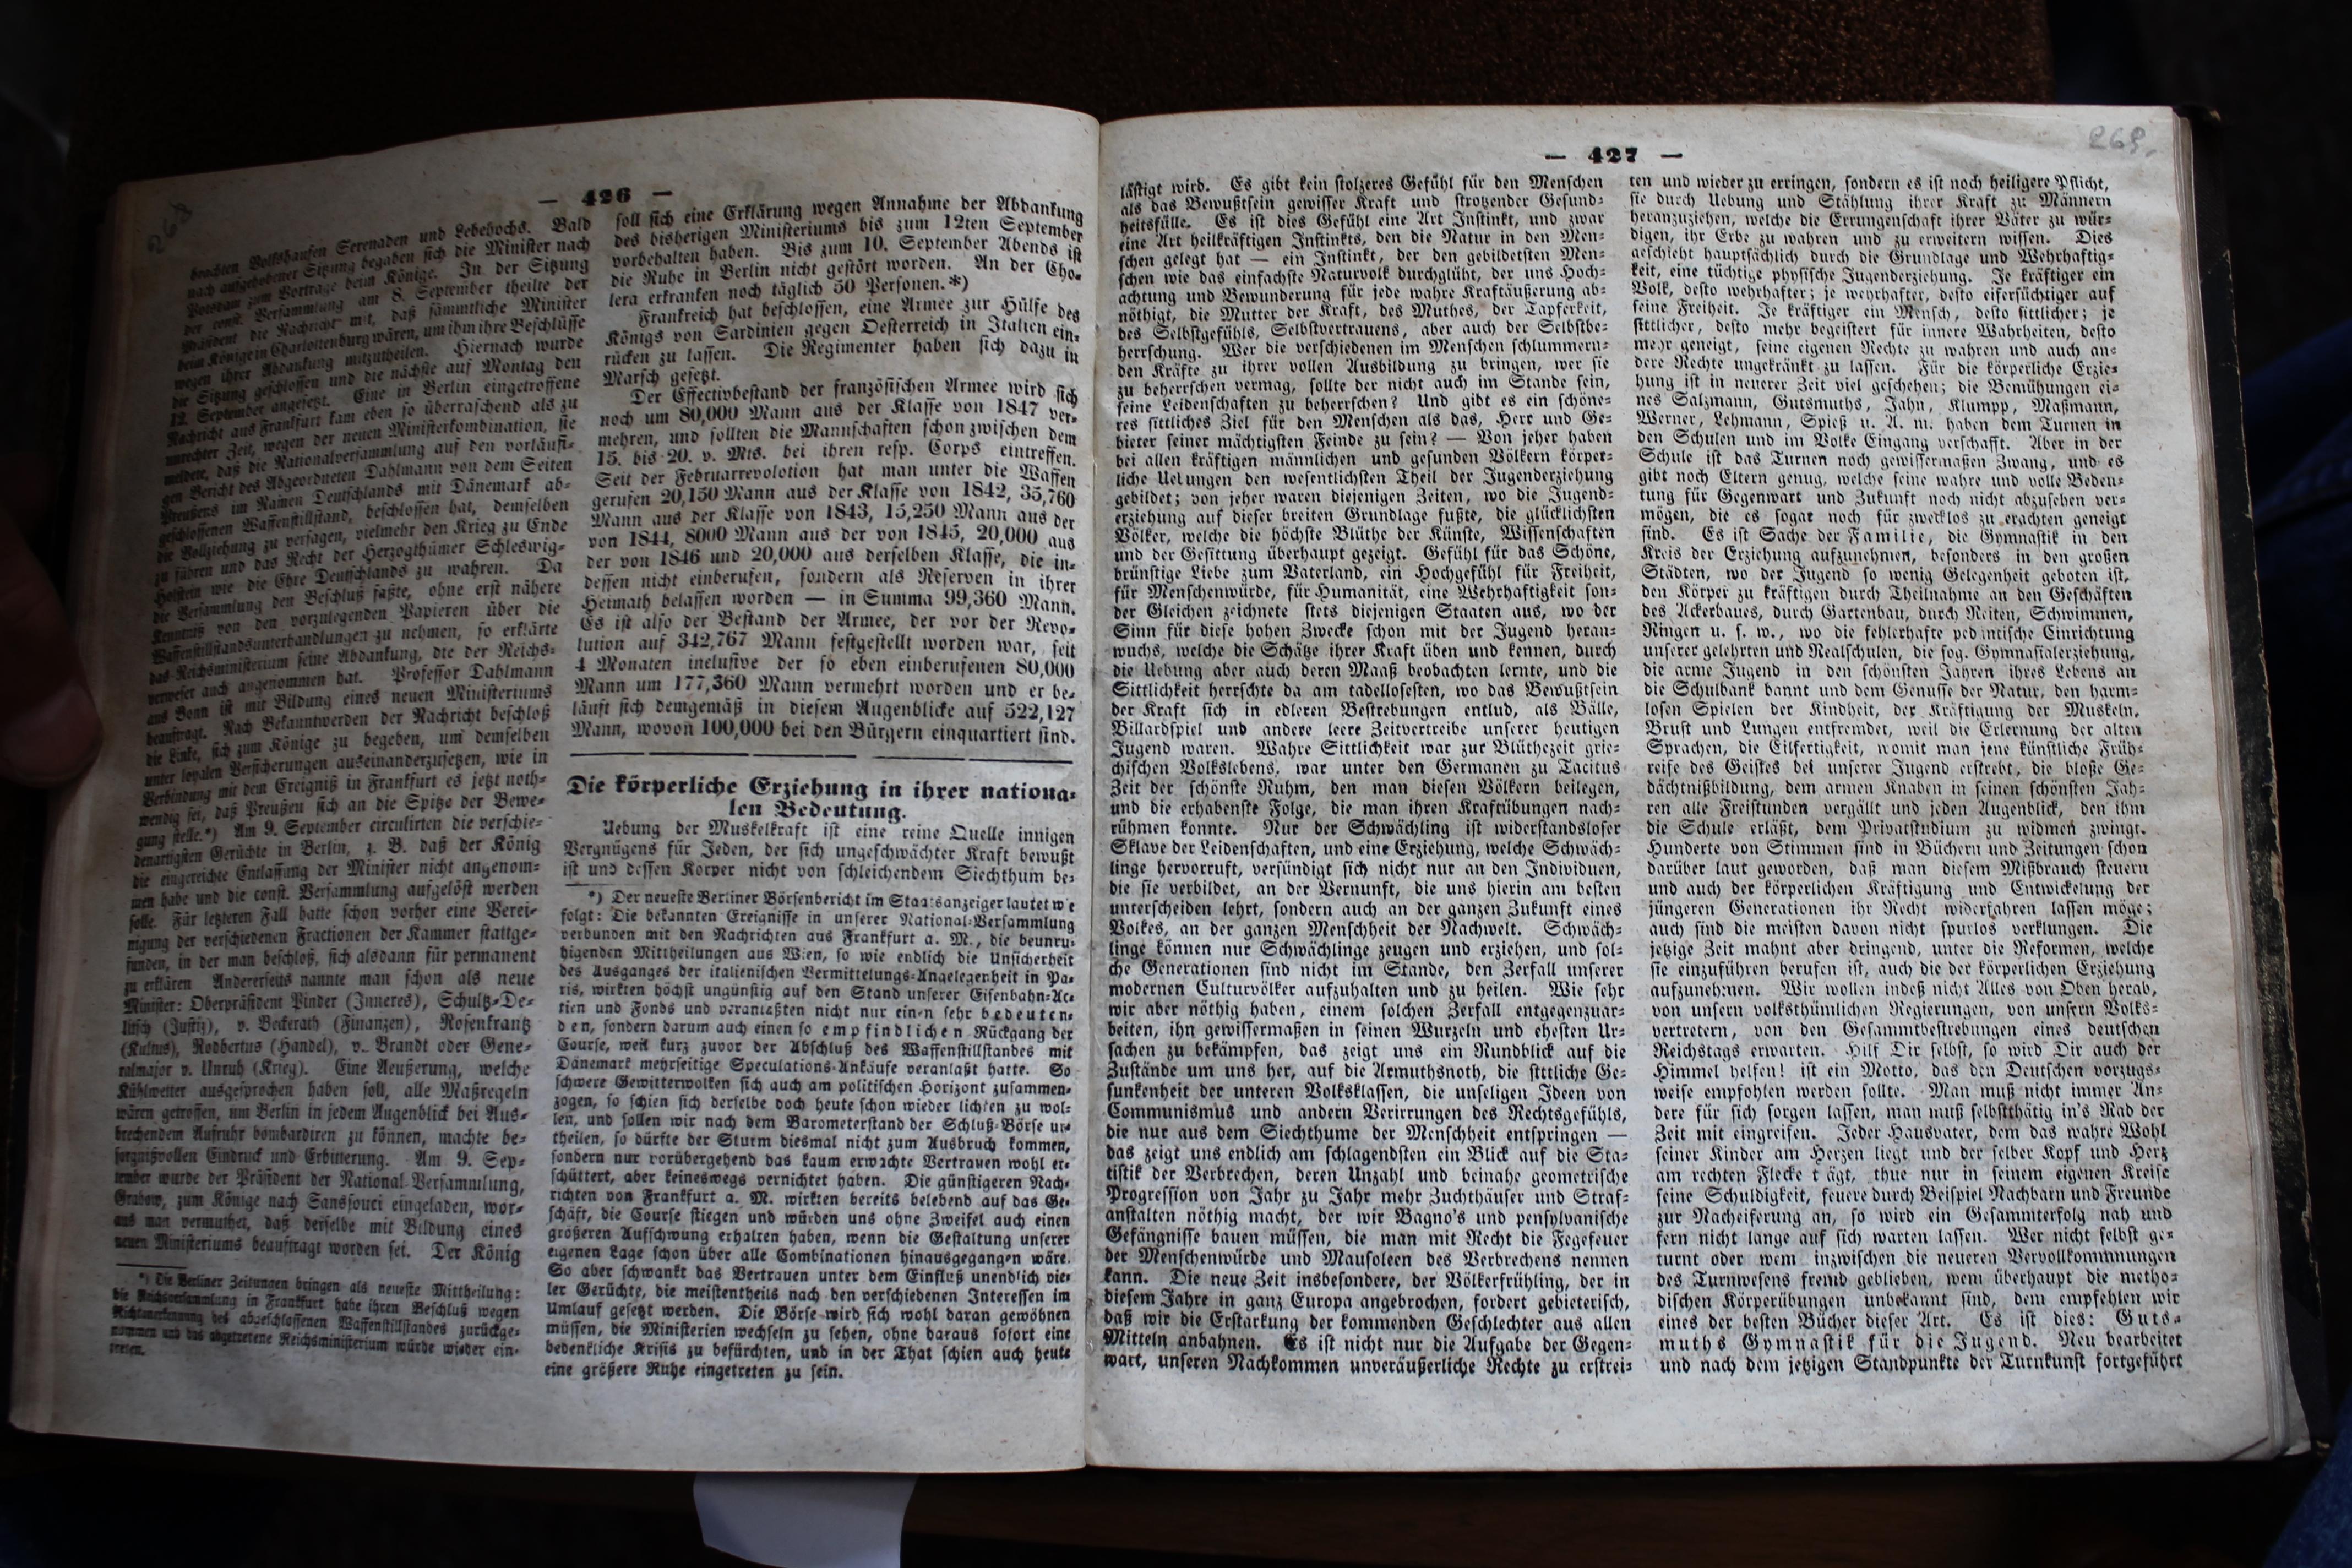 — 426 —
brachten Volkshaufen Serenaden und Lebehochs. Bald
nach aufgehobener Sitzung begaben sich die Minister nach
Potsdam zum Vortrage beim Könige. In der Sitzung
der const. Versammlung am 8. September theilte der
Präsident die Nachricht mit, daß sämmtliche Minister
beim Könige in Charlottenburg wären, um ihm ihre Beschlüsse
wegen ihrer Abdankung mitzutheilen. Hiernach wurde
die Sitzung geschlossen und die nächste auf Montag den
12. September angesetzt. Eine in Berlin eingetroffene
Nachricht aus Frankfurt kam eben so überraschend als zu
unrechter Zeit, wegen der neuen Ministerkombination, sie
meldete, daß die Nationalversammlung auf den vorläufi-
gen Bericht des Abgeordneten Dahlmann von dem Seiten
Preußens im Namen Deutschlands mit Dänemark ab-
geschlossenen Waffenstillstand, beschlossen hat, demselben
die Vollziehung zu versagen, vielmehr den Krieg zu Ende
zu führen und das Recht der Herzogthümer Schleswig-
Holstein wie die Ehre Deutschlands zu wahren. Da
die Versammlung den Beschluß faßte, ohne erst nähere
Kenntniß von den vorzulegenden Papieren über die
Waffenstillstandsunterhandlungen zu nehmen, so erklärte
das Reichsministerium seine Abdankung, die der Reichs-
verweser auch angenommen hat. Professor Dahlmann
aus Bonn ist mit Bildung eines neuen Ministeriums
beauftragt. Nach Bekanntwerden der Nachricht beschloß
die Linke, sich zum Könige zu begeben, um demselben
unter loyalen Versicherungen auseinanderzusetzen, wie in
Verbindung mit dem Ereigniß in Frankfurt es jetzt noth-
wendig sei, daß Preußen sich an die Spitze der Bewe-
gung stelle.*) Am 9. September circulirten die verschie-
denartigsten Gerüchte in Berlin, z. B. daß der König
die eingereichte Entlassung der Minister nicht angenom-
men habe und die const. Versammlung aufgelöst werden
solle. Für letzteren Fall hatte schon vorher eine Verei-
nigung der verschiedenen Fractionen der Kammer stattge-
funden, in der man beschloß, sich alsdann für permanent
zu erklären Andererseits nannte man schon als neue
Minister: Oberpräsident Pinder (Inneres), Schultz-De-
litsch (Justiz), v. Beckerath (Finanzen), Rosenkrantz
(Kultus), Rodbertus (Handel), v. Brandt oder Gene-
ralmajor v. Unruh (Krieg). Eine Aeußerung, welche
Kühlwetter ausgesprochen haben soll, alle Maßregeln
wären getroffen, um Berlin in jedem Augenblick bei Aus-
brechendem Aufruhr bombardiren zu können, machte be-
sorgnißvollen Eindruck und Erbitterung. Am 9. Sep-
tember wurde der Präsident der National-Versammlung,
Grabow, zum Könige nach Sanssouci eingeladen, wor-
aus man vermuthet, daß derselbe mit Bildung eines
neuen Ministeriums beauftragt worden sei. Der König
*) Die Berliner Zeitungen bringen als neueste Mittheilung:
die Reichsversammlung in Frankfurt habe ihren Beschluß wegen
Nichtanerkennung des abgeschlossenen Waffenstillstandes zurückge-
nommen und das abgetretene Reichsministerium würde wieder ein-
treten.
soll sich eine Erklärung wegen Annahme der Abdankung
des bisherigen Ministeriums bis zum 12ten September
vorbehalten haben. Bis zum 10. September Abends ist
die Ruhe in Berlin nicht gestört worden. An der Cho-
lera erkranken noch täglich 50 Personen.*)
Frankreich hat beschlossen, eine Armee zur Hülfe des
Königs von Sardinien gegen Oesterreich in Italien ein-
rücken zu lassen. Die Regimenter haben sich dazu in
Marsch gesetzt.
Der Effectivbestand der französischen Armee wird sich
noch um 80,000 Mann aus der Klasse von 1847 ver-
mehren, und sollten die Mannschaften schon zwischen dem
15. bis 20. v. Mts. bei ihren resp. Corps eintreffen.
Seit der Februarrevolotion hat man unter die Waffen
gerufen 20,150 Mann aus der Klasse von 1842, 35,760
Mann aus der Klasse von 1843, 15,250 Mann aus der
von 1844, 8000 Mann aus der von 1845, 20,000 aus
der von 1846 und 20,000 aus derselben Klasse, die in-
dessen nicht einberufen, sondern als Reserven in ihrer
Heimath belassen worden — in Summa 99,360 Mann.
Es ist also der Bestand der Armee, der vor der Revo-
lution auf 342,767 Mann festgestellt worden war, seit
4 Monaten inclusive der so eben einberufenen 80,000
Mann um 177,360 Mann vermehrt worden und er be-
läuft sich demgemäß in diesem Augenblicke auf 522,127
Mann, wovon 100,000 bei den Bürgern einquartiert sind.
Die körperliche Erziehung in ihrer nationa-
len Bedeutung.
Uebung der Muskelkraft ist eine reine Quelle innigen
Vergnügens für Jeden, der sich ungeschwächter Kraft bewußt
ist und dessen Körper nicht von schleichendem Siechthum be-
*) Der neueste Berliner Börsenbericht im Staatsanzeiger lautet wie
folgt: Die bekannten Ereignisse in unserer National-Versammlung
verbunden mit den Nachrichten aus Frankfurt a. M., die beunru-
higenden Mittheilungen aus Wien, so wie endlich die Unsicherheit
des Ausganges der italienischen Vermittelungs-Angelegenheit in Pa-
ris, wirkten höchst ungünstig auf den Stand unserer Eisenbahn-Ac-
tien und Fonds und veranlaßten nicht nur einen sehr bedeuten-
den, sondern darum auch einen so empfindlichen Rückgang der
Course, weil kurz zuvor der Abschluß des Waffenstillstandes mit
Dänemark mehrseitige Speculations-Ankäufe veranlaßt hatte. So
schwere Gewitterwolken sich auch am politischen Horizont zusammen-
zogen, so schien sich derselbe doch heute schon wieder lichten zu wol-
len, und sollen wir nach dem Barometerstand der Schluß-Börse ur-
theilen, so dürfte der Sturm diesmal nicht zum Ausbruch kommen,
sondern nur vorübergehend das kaum erwachte Vertrauen wohl er-
schüttert, aber keineswegs vernichtet haben. Die günstigeren Nach-
richten von Frankfurt a. M. wirkten bereits belebend auf das Ge-
schäft, die Course stiegen und würden uns ohne Zweifel auch einen
größeren Aufschwung erhalten haben, wenn die Gestaltung unserer
eigenen Lage schon über alle Combinationen hinausgegangen wäre.
So aber schwankt das Vertrauen unter dem Einfluß unendlich vie-
ler Gerüchte, die meistentheils nach den verschiedenen Interessen im
Umlauf gesetzt werden. Die Börse wird sich wohl daran gewöhnen
müssen, die Ministerien wechseln zu sehen, ohne daraus sofort eine
bedenkliche Krisis zu befürchten, und in der That schien auch heute
eine größere Ruhe eingetreten zu sein.
— 427 —
269.
lästigt wird. Es gibt kein stolzeres Gefühl für den Menschen
als das Bewußtsein gewisser Kraft und strotzender Gesund-
heitsfülle. Es ist dies Gefühl eine Art Instinkt, und zwar
eine Art heilkräftigen Instinkts, den die Natur in den Men-
schen gelegt hat — ein Instinkt, der den gebildetsten Men-
schen wie das einfachste Naturvolk durchglüht, der uns Hoch-
achtung und Bewunderung für jede wahre Kraftäußerung ab-
nöthigt, die Mutter der Kraft, des Muthes, der Tapferkeit,
des Selbstgefühls, Selbstvertrauens, aber auch der Selbstbe-
herrschung. Wer die verschiedenen im Menschen schlummern-
den Kräfte zu ihrer vollen Ausbildung zu bringen, wer sie
zu beherrschen vermag, sollte der nicht auch im Stande sein,
seine Leidenschaften zu beherrschen? Und gibt es ein schöne-
res sittliches Ziel für den Menschen als das, Herr und Ge-
bieter seiner mächtigsten Feinde zu sein? — Von jeher haben
bei allen kräftigen männlichen und gesunden Völkern körper-
liche Uebungen den wesentlichsten Theil der Jugenderziehung
gebildet; von jeher waren diejenigen Zeiten, wo die Jugend-
erziehung auf dieser breiten Grundlage fußte, die glücklichsten
Völker, welche die höchste Blüthe der Künste, Wissenschaften
und der Gesittung überhaupt gezeigt. Gefühl für das Schöne,
brünstige Liebe zum Vaterland, ein Hochgefühl für Freiheit,
für Menschenwürde, für Humanität, eine Wehrhaftigkeit son-
der Gleichen zeichnete stets diejenigen Staaten aus, wo der
Sinn für diese hohen Zwecke schon mit der Jugend heran-
wuchs, welche die Schätze ihrer Kraft üben und kennen, durch
die Uebung aber auch deren Maaß beobachten lernte, und die
Sittlichkeit herrschte da am tadellosesten, wo das Bewußtsein
der Kraft sich in edleren Bestrebungen entlud, als Bälle,
Billardspiel und andere leere Zeitvertreibe unserer heutigen
Jugend waren. Wahre Sittlichkeit war zur Blüthezeit grie-
chischen Volkslebens, war unter den Germanen zu Tacitus
Zeit der schönste Ruhm, den man diesen Völkern beilegen,
und die erhabenste Folge, die man ihren Kraftübungen nach-
rühmen konnte. Nur der Schwächling ist widerstandsloser
Sklave der Leidenschaften, und eine Erziehung, welche Schwäch-
linge hervorruft, versündigt sich nicht nur an den Individuen,
die sie verbildet, an der Vernunft, die uns hierin am besten
unterscheiden lehrt, sondern auch an der ganzen Zukunft eines
Volkes, an der ganzen Menschheit der Nachwelt. Schwäch-
linge können nur Schwächlinge zeugen und erziehen, und sol-
che Generationen sind nicht im Stande, den Zerfall unserer
modernen Culturvölker aufzuhalten und zu heilen. Wie sehr
wir aber nöthig haben, einem solchen Zerfall entgegenzuar-
beiten, ihn gewissermaßen in seinen Wurzeln und ehesten Ur-
sachen zu bekämpfen, das zeigt uns ein Rundblick auf die
Zustände um uns her, auf die Armuthsnoth, die sittliche Ge-
sunkenheit der unteren Volksklassen, die unseligen Ideen von
Communismus und andern Verirrungen des Rechtsgefühls,
die nur aus dem Siechthume der Menschheit entspringen —
das zeigt uns endlich am schlagendsten ein Blick auf die Sta-
tistik der Verbrechen, deren Unzahl und beinahe geometrische
Progression von Jahr zu Jahr mehr Zuchthäuser und Straf-
anstalten nöthig macht, der wir Bagno's und pensylvanische
Gefängnisse bauen müssen, die man mit Recht die Fegefeuer
der Menschenwürde und Mausoleen des Verbrechens nennen
kann. Die neue Zeit insbesondere, der Völkerfrühling, der in
diesem Jahre in ganz Europa angebrochen, fordert gebieterisch,
daß wir die Erstarkung der kommenden Geschlechter aus allen
Mitteln anbahnen. Es ist nicht nur die Aufgabe der Gegen-
wart, unseren Nachkommen unveräußerliche Rechte zu erstrei-
ten und wieder zu erringen, sondern es ist noch heiligere Pflicht,
sie durch Uebung und Stählung ihrer Kraft zu Männern
heranzuziehen, welche die Errungenschaft ihrer Väter zu wür-
digen, ihr Erbe zu wahren und zu erweitern wissen. Dies
geschieht hauptsächlich durch die Grundlage und Wehrhaftig-
keit, eine tüchtige physische Jugenderziehung. Je kräftiger ein
Volk, desto wehrhafter; je wehrhafter, desto eifersüchtiger auf
seine Freiheit. Je kräftiger ein Mensch, desto sittlicher; je
sittlicher, desto mehr begeistert für innere Wahrheiten, desto
mehr geneigt, seine eigenen Rechte zu wahren und auch an-
dere Rechte ungekränkt zu lassen. Für die körperliche Erzie-
hung ist in neuerer Zeit viel geschehen; die Bemühungen ei-
nes Salzmann, Gutsmuths, Jahn, Klumpp, Maßmann,
Werner, Lehmann, Spieß u. A. m. haben dem Turnen in
den Schulen und im Volke Eingang verschafft. Aber in der
Schule ist das Turnen noch gewissermaßen Zwang, und es
gibt noch Eltern genug, welche seine wahre und volle Bedeu-
tung für Gegenwart und Zukunft noch nicht abzusehen ver-
mögen, die es sogar noch für zwecklos zu erachten geneigt
sind. Es ist Sache der Familie, die Gymnastik in den
Kreis der Erziehung aufzunehmen, besonders in den großen
Städten, wo der Jugend so wenig Gelegenheit geboten ist,
den Körper zu kräftigen durch Theilnahme an den Geschäften
des Ackerbaues, durch Gartenbau, durch Reiten, Schwimmen,
Ringen u. s. w., wo die fehlerhafte pedantische Einrichtung
unserer gelehrten und Realschulen, die sog. Gymnasialerziehung,
die arme Jugend in den schönsten Jahren ihres Lebens an
die Schulbank bannt und dem Genusse der Natur, den harm-
losen Spielen der Kindheit, der Kräftigung der Muskeln,
Brust und Lungen entfremdet, weil die Erlernung der alten
Sprachen, die Eilfertigkeit, womit man jene künstliche Früh-
reife des Geistes bei unserer Jugend erstrebt, die bloße Ge-
dächtnißbildung, dem armen Knaben in seinen schönsten Jah-
ren alle Freistunden vergällt und jeden Augenblick, den ihm
die Schule erläßt, dem Privatstudium zu widmen zwingt.
Hunderte von Stimmen sind in Büchern und Zeitungen schon
darüber laut geworden, daß man diesem Mißbrauch steuern
und auch der körperlichen Kräftigung und Entwickelung der
jüngeren Generationen ihr Recht widerfahren lassen möge;
auch sind die meisten davon nicht spurlos verklungen. Die
jetzige Zeit mahnt aber dringend, unter die Reformen, welche
sie einzuführen berufen ist, auch die der körperlichen Erziehung
aufzunehmen. Wir wollen indeß nicht Alles von Oben herab,
von unsern volksthümlichen Regierungen, von unsern Volks-
vertretern, von den Gesammtbestrebungen eines deutschen
Reichstags erwarten. Hilf Dir selbst, so wird Dir auch der
Himmel helfen! ist ein Motto, das den Deutschen vorzugs-
weise empfohlen werden sollte. Man muß nicht immer An-
dere für sich sorgen lassen, man muß selbstthätig in's Rad der
Zeit mit eingreifen. Jeder Hausvater, dem das wahre Wohl
seiner Kinder am Herzen liegt und der selber Kopf und Herz
am rechten Flecke trägt, thue nur in seinem eigenen Kreise
seine Schuldigkeit, feuere durch Beispiel Nachbarn und Freunde
zur Nacheiferung an, so wird ein Gesammterfolg nah und
fern nicht lange auf sich warten lassen. Wer nicht selbst ge-
turnt oder wem inzwischen die neueren Vervollkommnungen
des Turnwesens fremd geblieben, wem überhaupt die metho-
dischen Körperübungen unbekannt sind, dem empfehlen wir
eines der besten Bücher dieser Art. Es ist dies: Guts-
muths Gymnastik für die Jugend. Neu bearbeitet
und nach dem jetzigen Standpunkte der Turnkunst fortgeführt